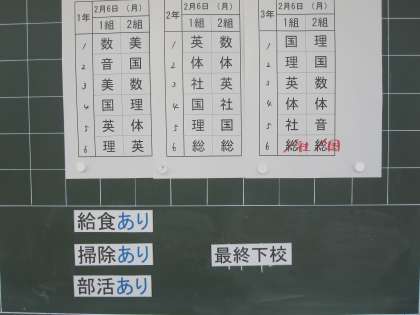 1年 2月6日 (月)
1組 2組
1 数 美
2 音 国
3 美 数
4 国 理
5 英 体
6 理 英
2年 2月6日 (月)
1組 2組
1 英 数
2 体 体
3 社 英
4 国 社
5 理 国
6 総 総
3年 2月6日 (月)
1組 2組
1 国 理
2 理 国
3 英 数
4 体 体
5 社 音
6 総社 総国
給食あり
掃除あり
部活あり
最終下校